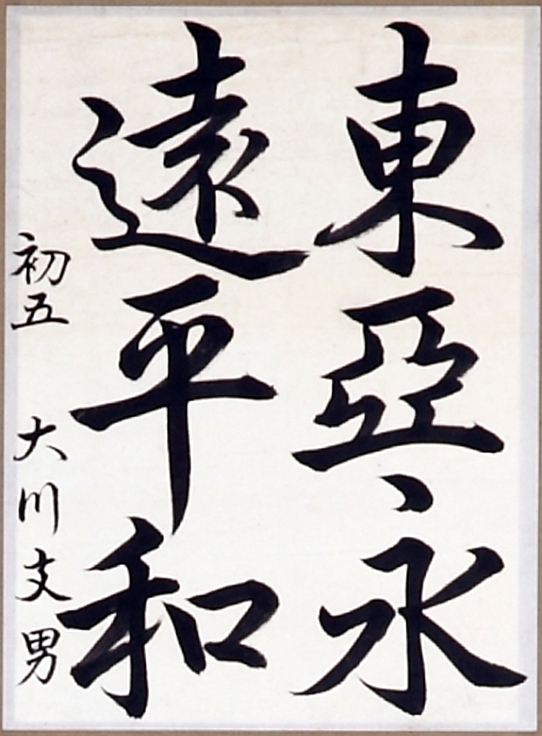 東亞永
遠平和
初五 大川文男